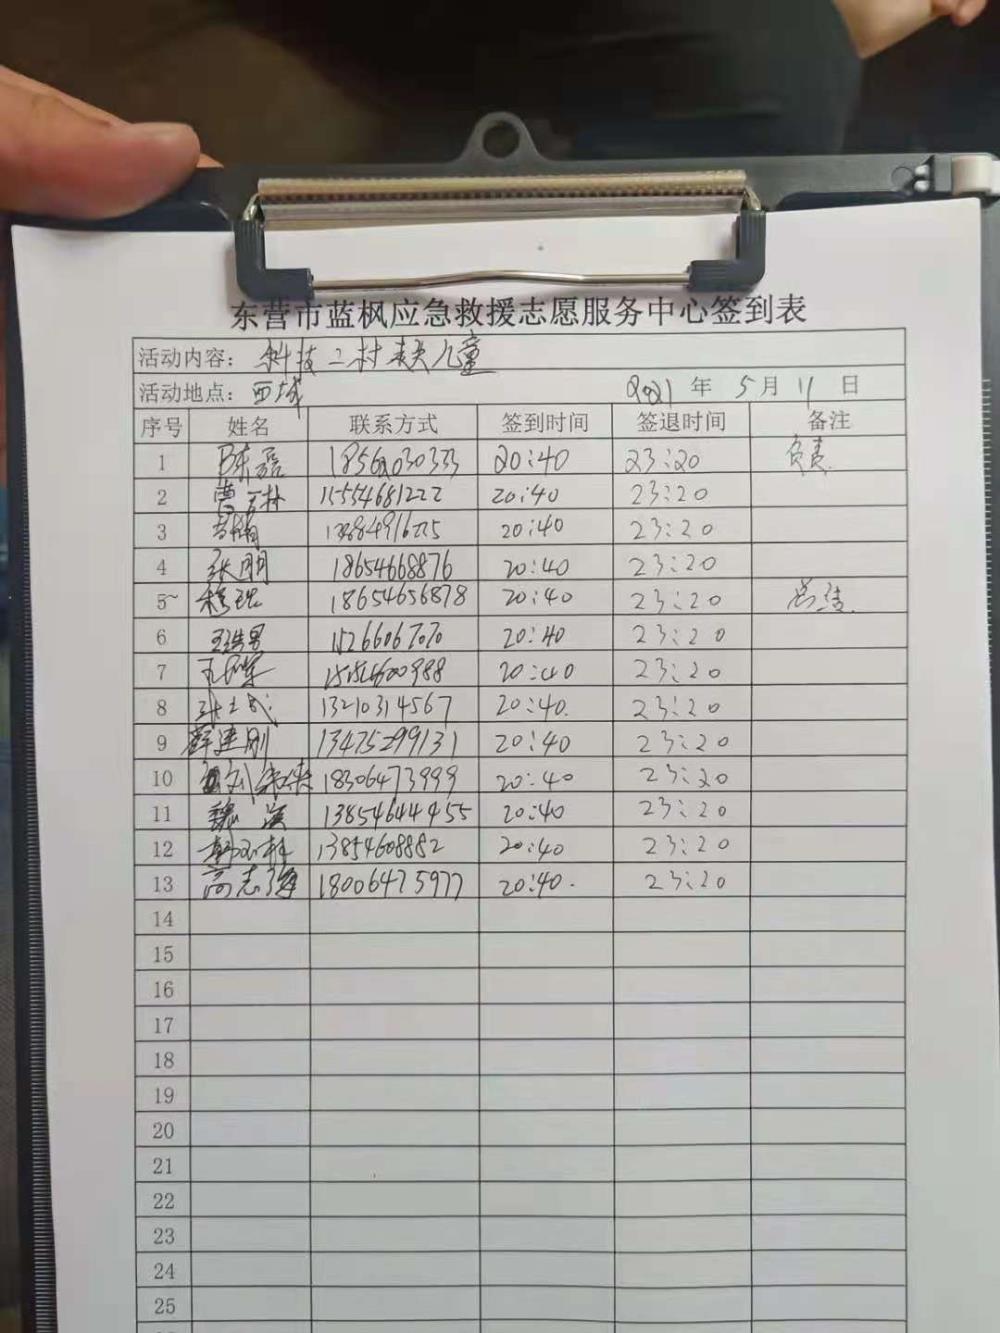 东营市蓝枫应急救援志愿服务中心签到表
活动内容: 科技二村 走失儿童
活动地点: 西城 2021 年 5 月 11 日
序号 姓名 联系方式 签到时间 签退时间 备注
1 陈磊 20:40 23:20 负责
2 15554681222 20:40 23:20
3 20:40 23:20
4 张朋 18654668876 20:40 23:20
5 18654656878 20:40 23:20 总结
6 王浩男 15266067070 20:40 23:20
7 20:40 23:20
8 13210314567 20:40. 23:20
9 薛建刚 13475299131 20:40 23:20
10 18306473999 20:40 23:20
11 魏滨 13854644455 20:40 23:20
12 13854608882 20:40 23:20
13 高志强 18006475977 20:40. 23:20
14
15
16
17
18
19
20
21
22
23
24
25